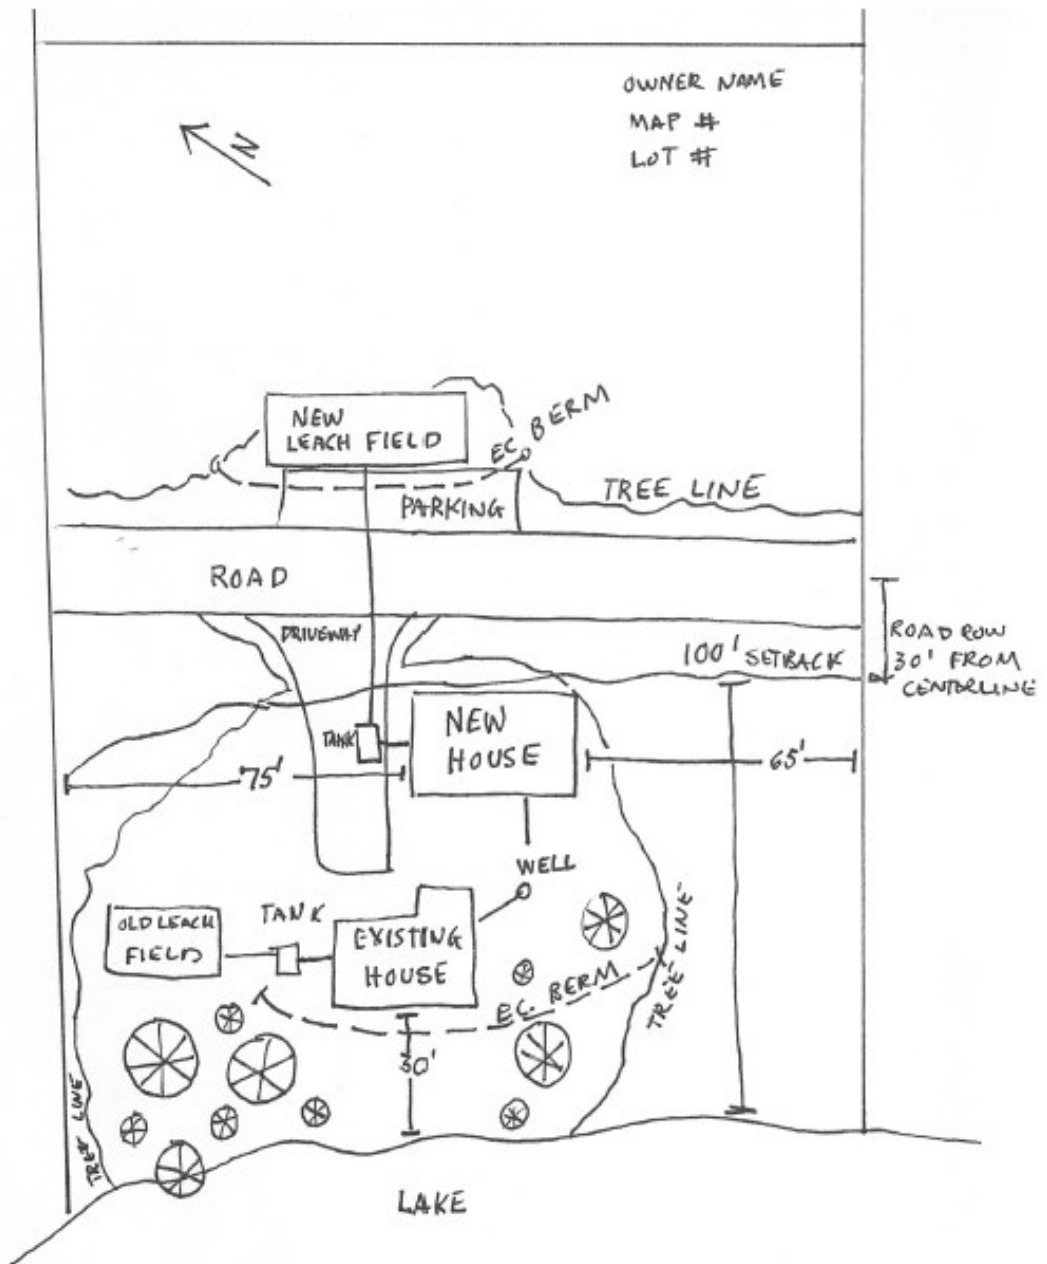 OWNER NAME
MAP #
LOT #
N
NEW
LEACH FIELD
EC BERM
PARKING
TREE LINE
ROAD
DRIVEWAY
100' SETBACK
ROAD ROW
30' FROM
CENTERLINE
TANK
NEW
HOUSE
75'
65'
WELL
OLD LEACH
FIELD
TANK
EXISTING
HOUSE
EC. BERM
TREE LINE
30'
TREE LINE
LAKE